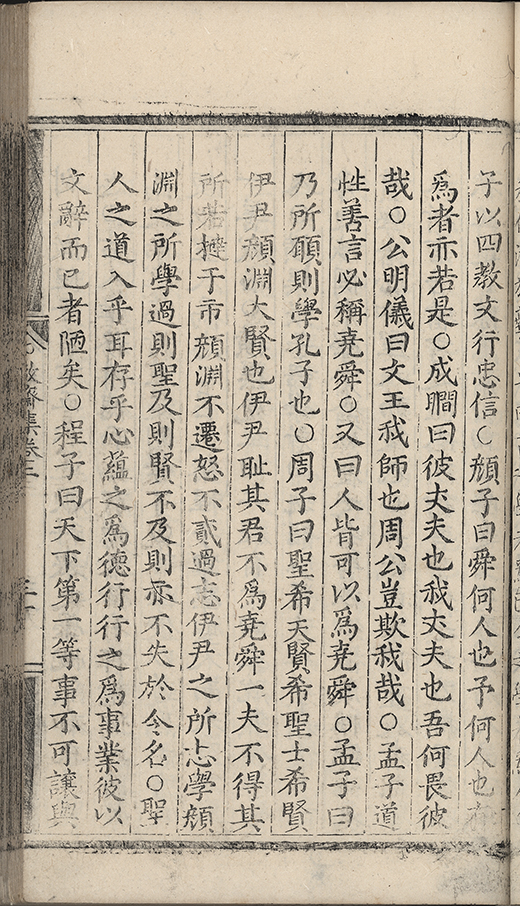 子以四教文行忠信○顔子曰舜何人也予何人也有
爲者亦若是○成瞷曰彼丈夫也我丈夫也吾何畏彼
哉○公明儀曰文王我師也周公豈欺我哉○孟子道
性善言必稱堯舜○又曰人皆可以爲堯舜○孟子曰
乃所願則學孔子也○周子曰聖希天賢希聖士希賢
伊尹顔淵大賢也伊尹耻其君不爲堯舜一夫不得其
所若撻于市顔淵不遷怒不貳過志伊尹之所志學顔
淵之所學過則聖及則賢不及則亦不失於令名○聖
人之道入乎耳存乎心蘊之爲德行行之爲事業彼以
文辭而已者陋矣○程子曰天下第一等事不可讓與
齋集卷三